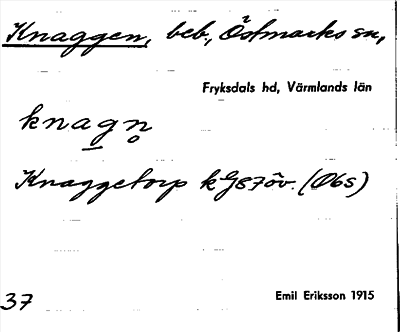 Knaggen, beb., Östmarks sn,
Fryksdals hd, Värmlands län
knagn̥
Knaggetorp kG87öv. (Obs)
37
Emil Eriksson 1915